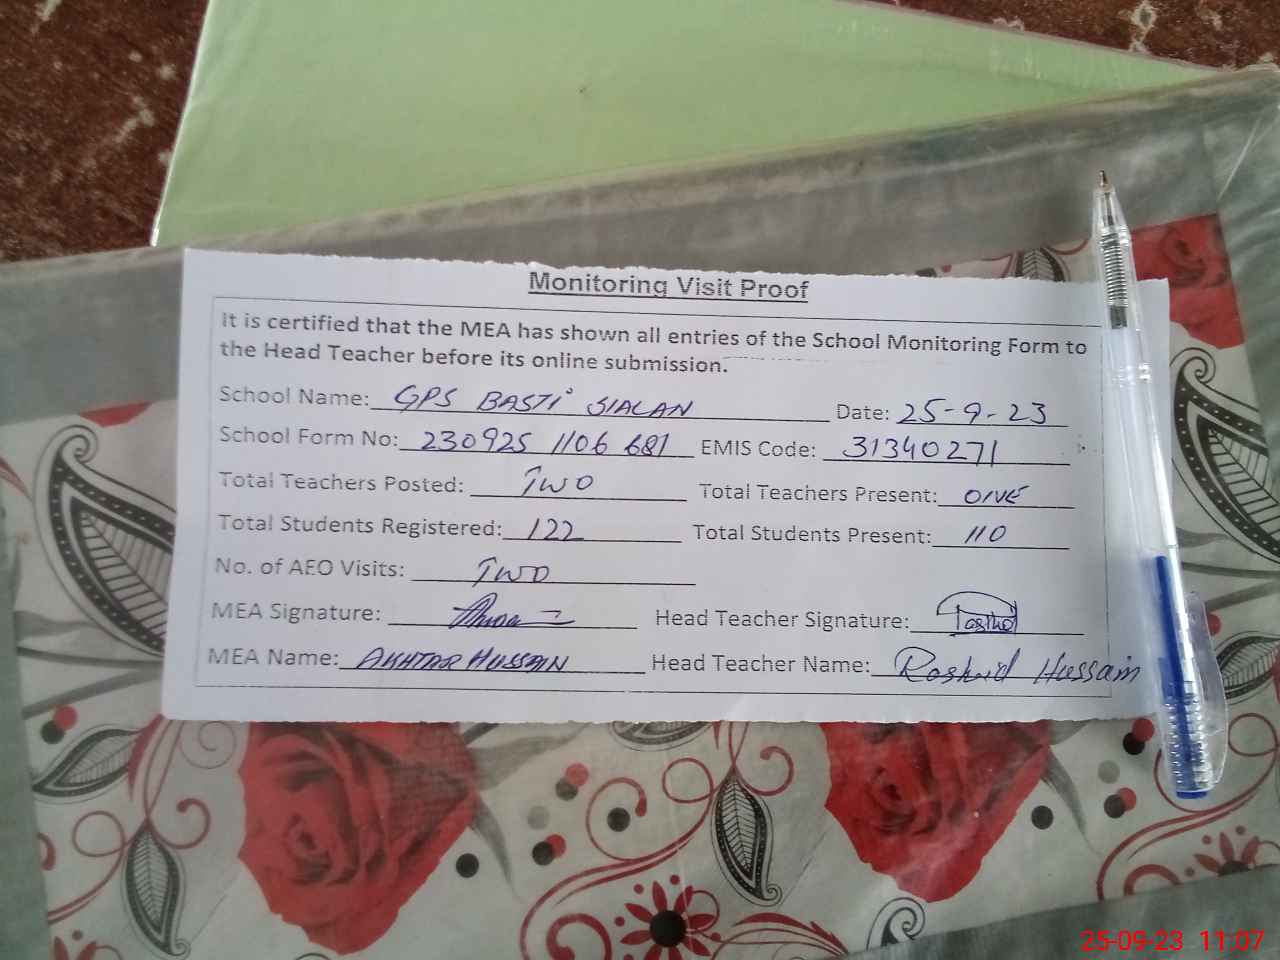 Monitoring Visit Proof
It is certified that the MEA has shown all entries of the School Monitoring Form to
the Head Teacher before its online submission.
School Name: GPS BASTI SIALAN Date: 25-9-23
School Form No: 230925 1106 681 EMIS Code: 31340271
Total Teachers Posted: TWO Total Teachers Present: ONE
Total Students Registered: 122 Total Students Present: 110
No. of AEO Visits: TWO
MEA Signature: Head Teacher Signature:
MEA Name: AKHTAR HUSSAIN Head Teacher Name: Rashid Hussain
25-09-23 11:07